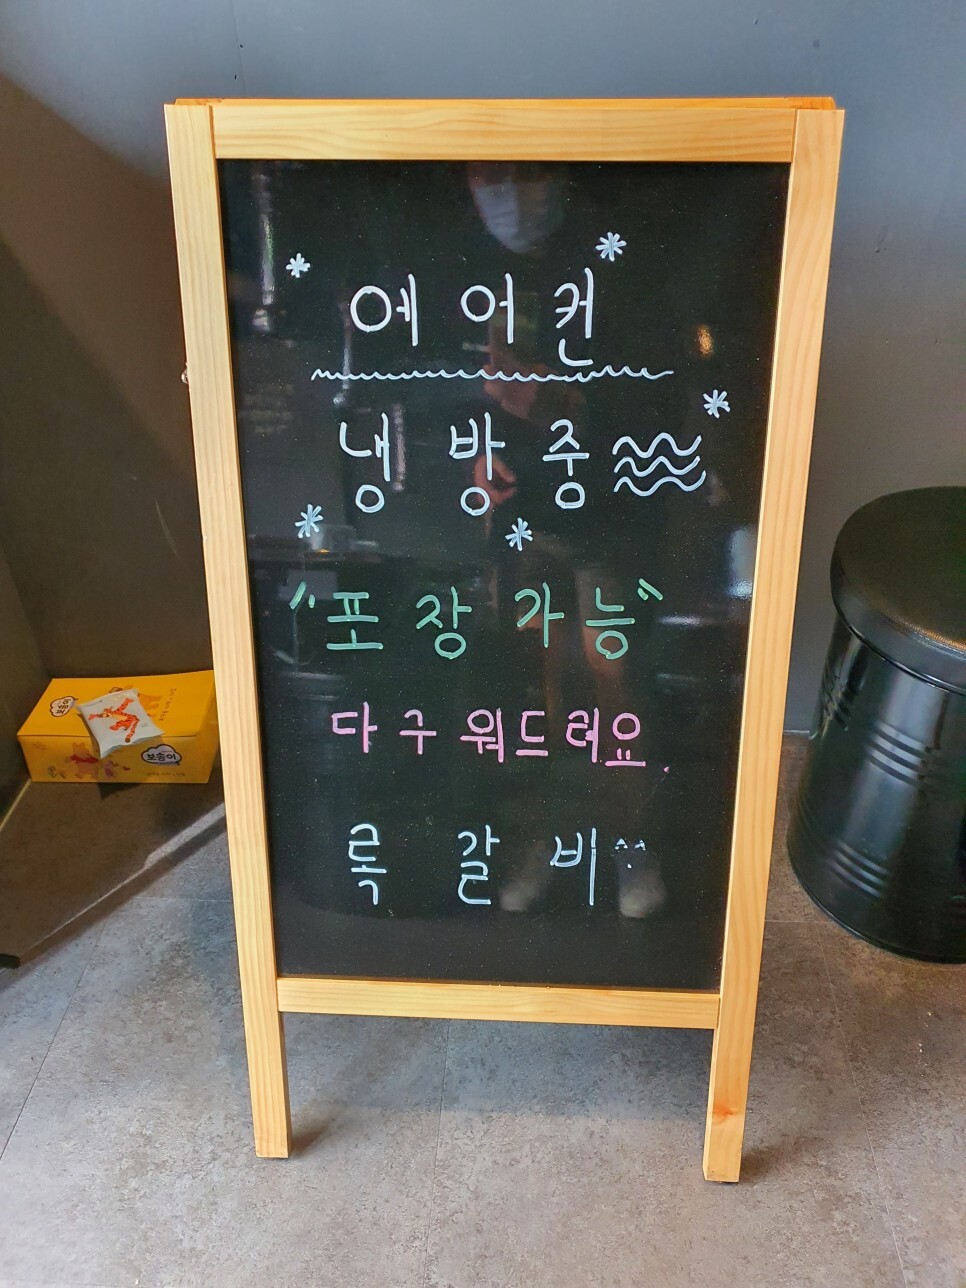 에어컨
냉방중
"포장가능"
다구워드려요.
록갈비^^
보송이
보송이